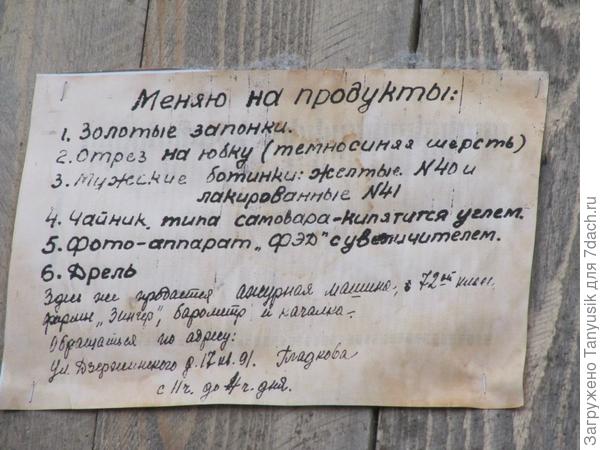 Меняю на продукты:
1. Золотые запонки.
2. Отрез на юбку (темносиняя шерсть)
3. Мужские ботинки: желтые N40 и
лакированные N41
4. Чайник, типа самовара-кипятится углем.
5. Фото-аппарат „ФЭД" с увеличителем.
6. Дрель
Здесь же продается ажурная машина, 72ой класс,
фирмы „Зингер", барометр и качалка.
Обращаться по адресу:
ул. Дзержинского д. 17 кв. 91. Гладкова
с 11ч. до 4ч. дня.
Загружено Tanyusik для 7dach.ru